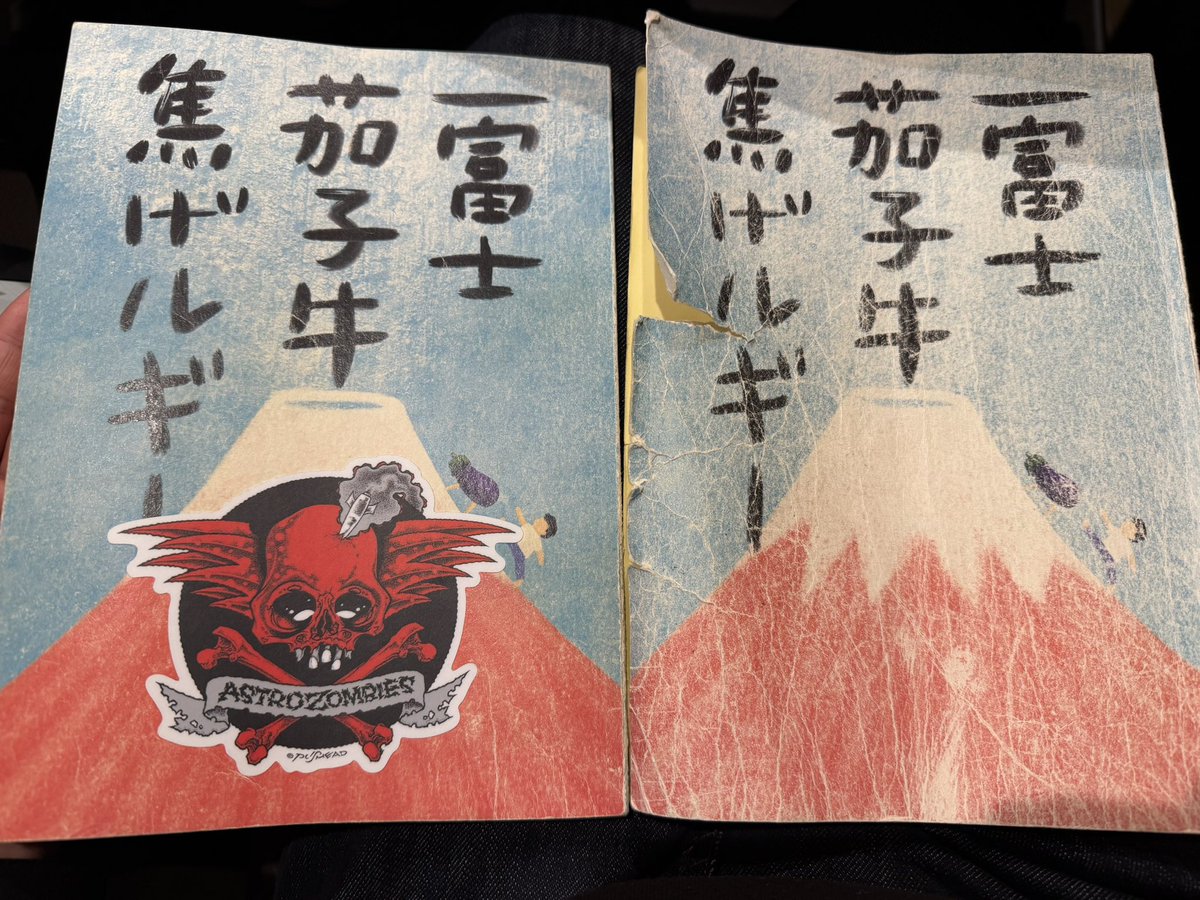 一富士
茄子牛
焦げルギー
ASTROZOMBIES
©PUSHEAD
一富士
茄子牛
焦げルギー